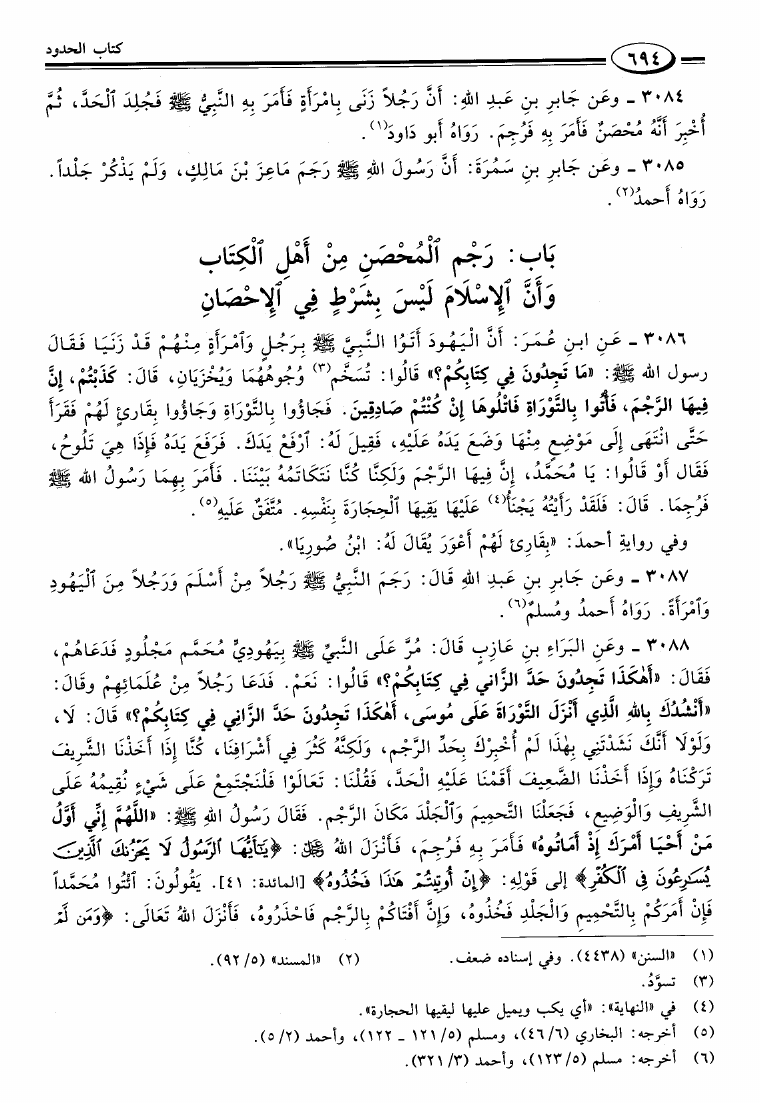 ٦٩٤ كتاب الحدود
٣٠٨٤ ـ وعَن جَابرِ بنِ عَبدِ اللهِ: أَنَّ رَجُلاً زَنَى بِامْرَأَةٍ فَأَمَرَ بِهِ النَّبِيُّ ﷺ فَجُلِدَ ٱلْحَدَّ، ثُمَّ
أُخْبِرَ أَنَّهُ مُحْصَنٌ فَأَمَرَ بِهِ فَرُجِمَ. رَوَاهُ أَبو دَاودَ(١).
٣٠٨٥ ـ وعَن جَابرِ بنِ سَمُرَةَ: أَنَّ رَسُولَ اللهِ ﷺ رَجَمَ مَاعِزَ بْنَ مَالِكٍ، وَلَمْ يَذْكُرْ جَلْداً.
رَوَاهُ أَحمدُ(٢).
بَاب: رَجْم ٱلْمُحْصَنِ مِنْ أَهْلِ ٱلْكِتَاب
وَأَنَّ ٱلإِسْلَامَ لَيْسَ بِشَرْطٍ فِي ٱلإِحْصَانِ
٣٠٨٦ ـ عَنِ ابنِ عُمَرَ: أَنَّ الْيَهُودَ أَتَوُا النَّبِيَّ ﷺ بِرَجُلٍ وَٱمْرَأَةٍ مِنْهُمْ قَدْ زَنَيَا فَقَالَ
رسول الله ﷺ: «مَا تَجِدُونَ فِي كِتَابِكُمْ؟» قَالُوا: تُسَخَّم(٣) وُجُوهُهُمَا وَيُخْزَيَانِ، قَالَ: كَذَبْتُمْ، إِنَّ
فِيهَا الرَّجْمَ، فَأْتُوا بِالتَّوْرَاةِ فَاتْلُوهَا إِنْ كُنْتُمْ صَادِقِينَ. فَجَاؤُوا بِالتَّوْرَاةِ وَجَاؤُوا بِقَارئٍ لَهُمْ فَقَرَأَ
حَتَّى ٱنْتَهَى إِلَى مَوْضِعٍ مِنْهَا وَضَعَ يَدَهُ عَلَيْهِ، فَقِيلَ لَهُ: ٱرْفَعْ يَدَكَ. فَرَفَعَ يَدَهُ فَإِذَا هِيَ تَلُوحُ،
فَقَال أَوْ قَالُوا: يَا مُحَمَّدُ، إِنَّ فِيهَا الرَّجْمَ وَلَكِنَّا كُنَّا نَتَكَاتَمُهُ بَيْنَنَا. فَأَمَرَ بِهِمَا رَسُولُ الله ﷺ
فَرُجِمَا. قَالَ: فَلَقَدْ رَأَيْتُهُ يَجْنَأُ(٤) عَلَيْهَا يَقِيهَا ٱلْحِجَارَةَ بِنَفْسِهِ. مُتَّفَقٌ عَلَيهِ(٥).
وفي روايةِ أحمدَ: «بِقَارِئٍ لَهُمْ أَعْوَرَ يُقَالَ لَهُ: ابْنُ صُورِيَا».
٣٠٨٧ ـ وعَن جَابرِ بنِ عَبدِ اللهِ قَالَ: رَجَمَ النَّبِيُّ ﷺ رَجُلاً مِنْ أَسْلَمَ وَرَجُلاً مِنَ ٱلْيَهُودِ
وَٱمْرَأَةً. رَوَاهُ أَحمدُ ومُسلمٌ(٦).
٣٠٨٨ ـ وعَنِ البَرَاءِ بنِ عَازِبٍ قَالَ: مُرَّ عَلَى النَّبِيِّ ﷺ بِيَهُودِيٍّ مُحَمَّمٍ مَجْلُودٍ فَدَعَاهُمْ،
فَقَالَ: «أَهٰكَذَا تَجِدُونَ حَدَّ الزَّاني فِي كِتَابِكُمْ؟» قَالُوا: نَعَمْ. فَدَعَا رَجُلاً مِنْ عُلَمَائِهِمْ وقَالَ:
«أَنْشُدُكَ بِاللهِ الَّذِي أَنْزَلَ التَّوْرَاةَ عَلَى مُوسَى، أَهٰكَذَا تَجِدُونَ حَدَّ الزَّانِي فِي كِتَابِكُمْ؟» قَالَ: لَا،
وَلَوْلَا أَنَّكَ نَشَدْتَنِي بِهٰذَا لَمْ أُخْبِرْكَ بِحَدِّ الرَّجْمِ، وَلَكِنَّهُ كَثُرَ فِي أَشْرَافِنَا، كُنَّا إِذَا أَخَذْنَا الشَّرِيفَ
تَرَكْنَاهُ وَإِذَا أَخَذْنَا الضَّعِيفَ أَقَمْنَا عَلَيْهِ الْحَدَّ، فَقُلْنَا: تَعَالَوْا فَلْنَجْتَمِعْ عَلَى شَيْءٍ نُقِيمُهُ عَلَى
الشَّرِيفِ وَالْوَضِيعِ، فَجَعَلْنَا التَّحْمِيمَ وَٱلْجَلْدَ مَكَانَ الرَّجْمِ. فَقَالَ رَسُولُ اللهِ ﷺ: «اللَّهُمَّ إِنِّي أَوَّلُ
مَنْ أَحْيَا أَمْرَكَ إِذْ أَمَاتُوهُ» فَأَمَرَ بِهِ فَرُجِمَ، فَأَنْزَلَ اللهُ ﷻ: ﴿يَٰٓأَيُّهَا الرَّسُولُ لَا يَحْزُنكَ الَّذِينَ
يُسَٰرِعُونَ فِى ٱلْكُفْرِ﴾ إلى قَوْلِهِ: ﴿إِنْ أُوتِيتُمْ هَٰذَا فَخُذُوهُ﴾ [المائدة: ٤١]. يَقُولُونَ: ٱئْتُوا مُحَمَّداً
فَإِنْ أَمَرَكُمْ بِالتَّحْمِيمِ وَالْجَلْدِ فَخُذُوهُ، وَإِنْ أَفْتَاكُمْ بِالرَّجْمِ فَاحْذَرُوهُ، فَأَنْزَلَ اللهُ تَعَالَى: ﴿وَمَن لَّمْ
(١) «السنن» (٤٤٣٨). وفي إسناده ضعف. (٢) «المسند» (٥/ ٩٢).
(٣) تسوَّدُ.
(٤) في «النهاية»: «أي يكب ويميل عليها ليقيها الحجارة».
(٥) أخرجه: البخاري (٦/ ٤٦)، ومسلم (٥/ ١٢١ ـ ١٢٢)، وأحمد (٢/ ٥).
(٦) أخرجه: مسلم (٥/ ١٢٣)، وأحمد (٣/ ٣٢١).